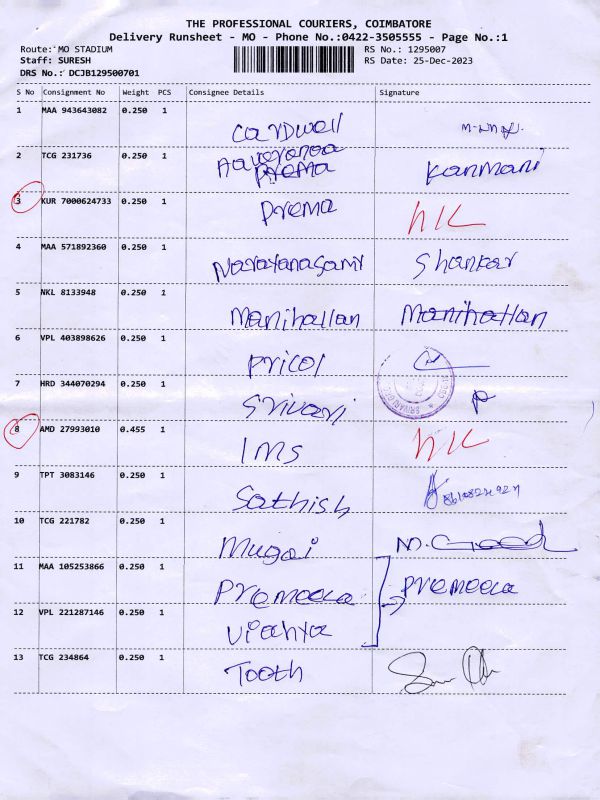 THE PROFESSIONAL COURIERS, COIMBATORE
Delivery Runsheet - MO - Phone No.:0422-3505555 - Page No.:1
Route: MO STADIUM RS No.: 1295007
Staff: SURESH RS Date: 25-Dec-2023
DRS No.: DCJB129500701
S No Consignment No Weight PCS Consignee Details Signature
1 MAA 943643082 0.250 1 Cardwell
2 TCG 231736 0.250 1 Prema Kanmani
3 KUR 7000624733 0.250 1 Prema
4 MAA 571892360 0.250 1 Narayanasami Shankar
5 NKL 8133948 0.250 1 Manihallan Manihallan
6 VPL 403898626 0.250 1 Pricol
7 HRD 344070294 0.250 1 Srivari P
8 AMD 27993010 0.455 1 IMS
9 TPT 3083146 0.250 1 Sathish
10 TCG 221782 0.250 1 Mugai
11 MAA 105253866 0.250 1 Premeela Premeela
12 VPL 221287146 0.250 1
13 TCG 234864 0.250 1 Tooth